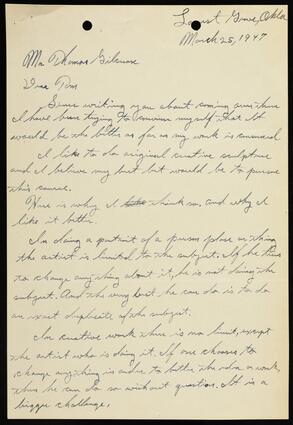 Locust Grove, Okla
March 25, 1947
Mr. Thomas Gilcrease
Dear Tom
Since writing you about coming over there
I have been trying to convince myself that it
would be the better as far as my work is concerned
I like to do original creative sculpture
and I believe my best bet would be to pursue
this course.
Here is why I think so, and why I
like it better.
In doing a portrait of a person place or thing
the artist is limited to the subject. If he tries
to change anything about it, he is not doing the
subject. And the very best he can do is to do
an exact duplicate of the subject.
In creative work there is no limit, except
the artist who is doing it. If one chooses to
change anything in order to better the idea or work,
then he can do so without question. It is a
bigger challenge.